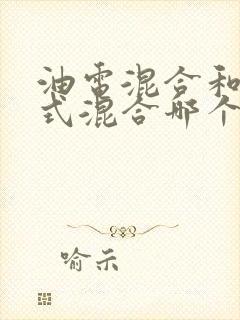 油电混合和
式混合那个
喻示